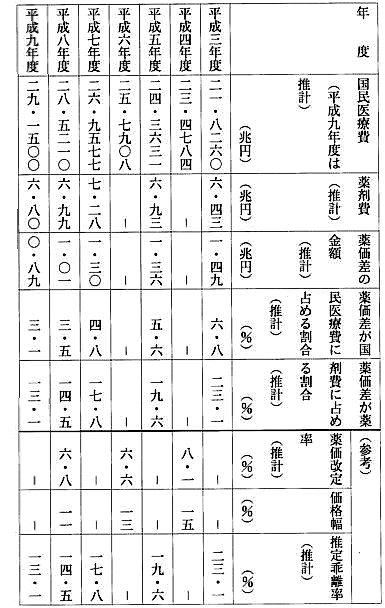 年度
国民医療費
(平成九年度は
推計)
(兆円)
薬剤費
(推計)
(兆円)
薬価差の
金額
(推計)
(兆円)
薬価差が国
民医療費に
占める割合
(推計)
(%)
薬価差が薬
剤費に占め
る割合
(推計)
(%)
(参考)
薬価改定
率
(推計)
(%)
価格幅
(%)
推定乖離率
(推計)
(%)
平成三年度 二一・八二六〇 六・四三 一・四九 六・八 二三・一 － － 二三・一
平成四年度 二三・四七八四 － － － － 八・一 一五 －
平成五年度 二四・三六三一 六・九三 一・三六 五・六 一九・六 － － 一九・六
平成六年度 二五・七九〇八 － － － － 六・六 一三 －
平成七年度 二六・九五七七 七・二八 一・三〇 四・八 一七・八 － － 一七・八
平成八年度 二八・五二一〇 六・九九 一・〇一 三・五 一四・五 六・八 一一 一四・五
平成九年度 二九・一五〇〇 六・八〇 〇・八九 三・一 一三・一 － － 一三・一